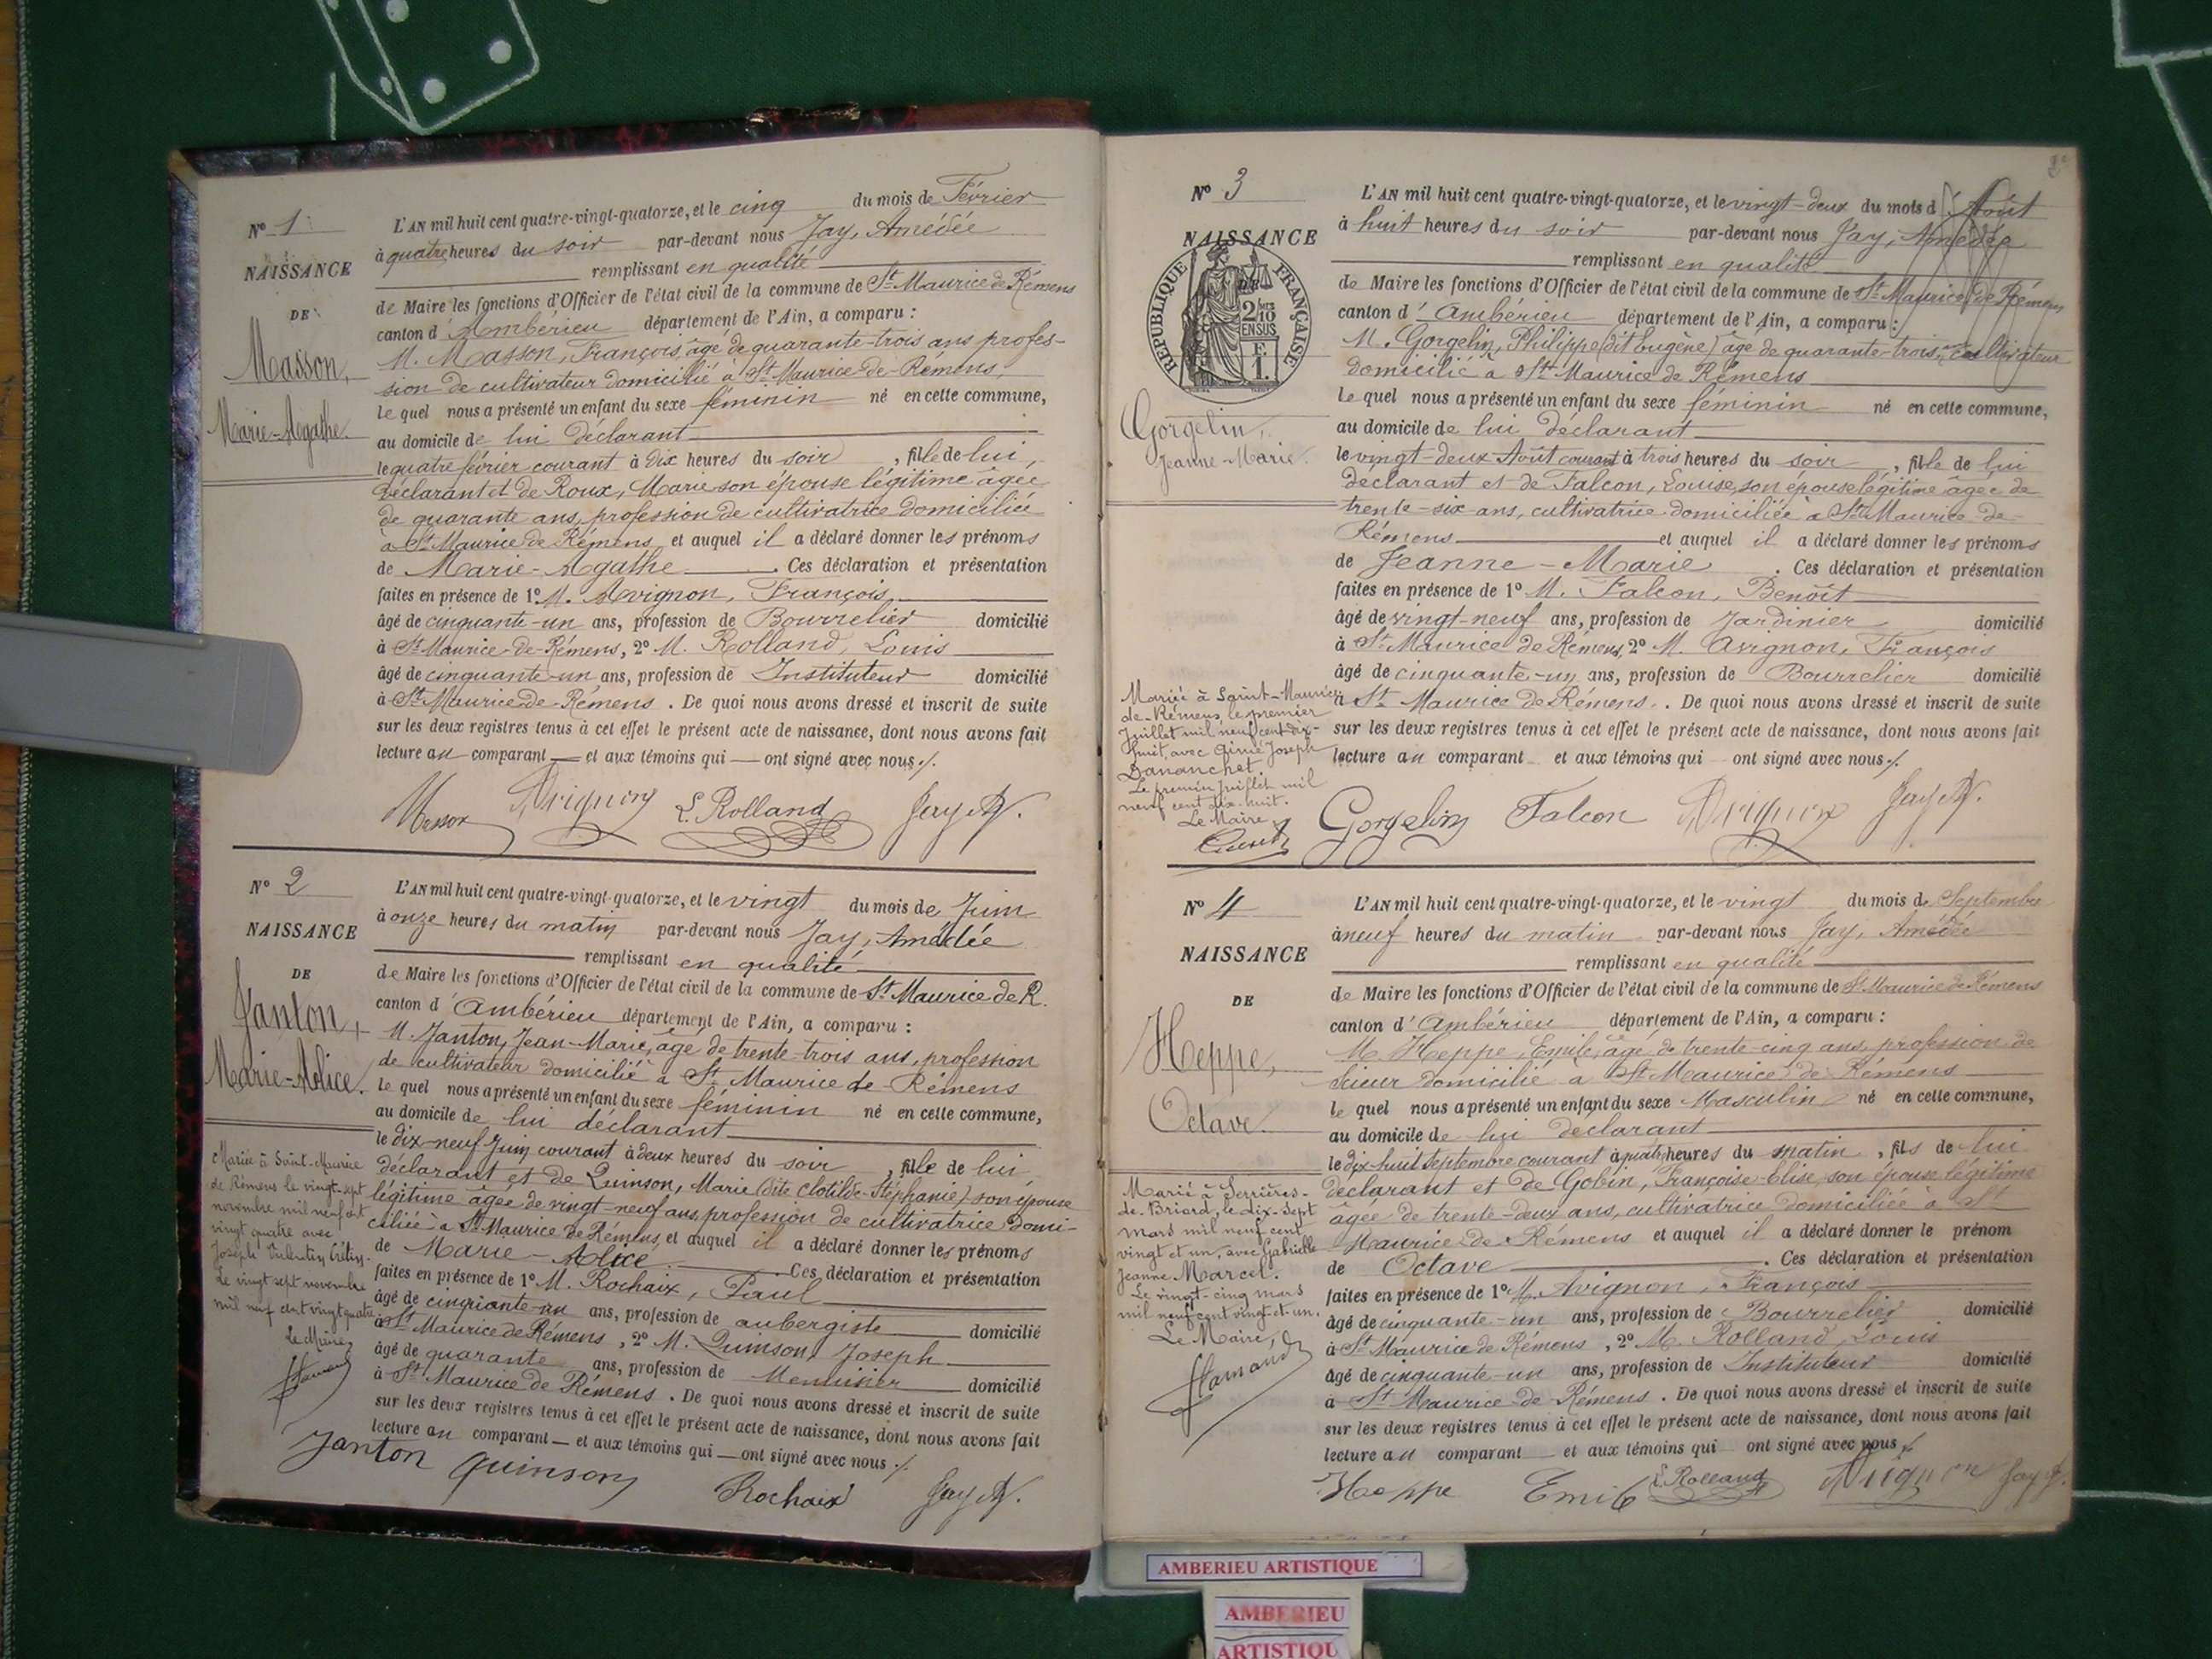 N° 1
NAISSANCE
DE
Masson,
Marie-Agathe.
L'AN mil huit cent quatre-vingt-quatorze, et le cinq du mois de Février
à quatre heures du soir par-devant nous Jay, Amédée
remplissant en qualité
de Maire les fonctions d'Officier de l'état civil de la commune de St Maurice de Rémens
canton d'Ambérieu département de l'Ain, a comparu :
M. Masson, François, âgé de quarante-trois ans profes-
sion de cultivateur domicilié à St Maurice-de-Rémens,
le quel nous a présenté un enfant du sexe féminin né en cette commune,
au domicile de lui déclarant
le quatre février courant à dix heures du soir, fille de lui,
déclarant et de Roux, Marie son épouse légitime âgée
de quarante ans, profession de cultivatrice domiciliée
à St Maurice de Rémens et auquel il a déclaré donner les prénoms
de Marie-Agathe. Ces déclaration et présentation
faites en présence de 1° M. Avignon, François,
âgé de cinquante-un ans, profession de Bourrelier domicilié
à St Maurice-de-Rémens, 2° M. Rolland, Louis
âgé de cinquante-un ans, profession de Instituteur domicilié
à St Maurice de-Rémens. De quoi nous avons dressé et inscrit de suite
sur les deux registres tenus à cet effet le présent acte de naissance, dont nous avons fait
lecture au comparant — et aux témoins qui — ont signé avec nous ./.
Masson Avignon L. Rolland Jay A.
N° 2
NAISSANCE
DE
Janton,
Marie-Alice.
Mariée à Saint-Maurice
de Rémens le vingt-sept
novembre mil neuf cent
vingt quatre avec
Joseph
Le vingt sept novembre
mil neuf cent vingt quatre
Le Maire,
L'AN mil huit cent quatre-vingt-quatorze, et le vingt du mois de Juin
à onze heures du matin par-devant nous Jay, Amédée
remplissant en qualité
de Maire les fonctions d'Officier de l'état civil de la commune de St Maurice de R.
canton d'Ambérieu département de l'Ain, a comparu :
M. Janton, Jean-Marie, âgé de trente-trois ans, profession
de cultivateur domicilié à St Maurice de Rémens
le quel nous a présenté un enfant du sexe féminin né en cette commune,
au domicile de lui déclarant
le dix-neuf Juin courant à deux heures du soir, fille de lui,
déclarant et de Quinson, Marie (dite Clotilde-Stéphanie) son épouse
légitime âgée de vingt-neuf ans, profession de cultivatrice domi-
ciliée à St Maurice de Rémens, et auquel il a déclaré donner les prénoms
de Marie-Alice. Ces déclaration et présentation
faites en présence de 1° M. Rochaix, Paul
âgé de cinquante-un ans, profession de aubergiste domicilié
à St Maurice de Rémens, 2° M. Quinson, Joseph
âgé de quarante ans, profession de Menuisier domicilié
à St Maurice de Rémens. De quoi nous avons dressé et inscrit de suite
sur les deux registres tenus à cet effet le présent acte de naissance, dont nous avons fait
lecture au comparant — et aux témoins qui — ont signé avec nous ./.
Janton Quinson Rochaix Jay A.
N° 3
NAISSANCE
DE
RÉPUBLIQUE FRANÇAISE
2/10
EN SUS
Gorgelin,
Jeanne-Marie.
Mariée à Saint-Maurice
de-Rémens, le premier
Juillet mil neuf cent dix-
huit, avec Aimé Joseph
Dananchet.
Le premier Juillet mil
neuf cent dix-huit.
Le Maire,
L'AN mil huit cent quatre-vingt-quatorze, et le vingt-deux du mois d'Août
à huit heures du soir par-devant nous Jay, Amédée
remplissant en qualité
de Maire les fonctions d'Officier de l'état civil de la commune de St Maurice de Rémens
canton d'Ambérieu département de l'Ain, a comparu :
M. Gorgelin, Philippe (dit Eugène) âgé de quarante-trois ans cultivateur
domicilié à St Maurice de Rémens
le quel nous a présenté un enfant du sexe féminin né en cette commune,
au domicile de lui déclarant
le vingt-deux Août courant à trois heures du soir, fille de lui
déclarant et de Falcon, Louise, son épouse légitime âgée de
trente-six ans, cultivatrice domiciliée à St Maurice de
Rémens et auquel il a déclaré donner les prénoms
de Jeanne-Marie. Ces déclaration et présentation
faites en présence de 1° M. Falcon, Benoît
âgé de vingt-neuf ans, profession de Jardinier domicilié
à St Maurice de Rémens, 2° M. Avignon, François
âgé de cinquante-un ans, profession de Bourrelier domicilié
à St Maurice de Rémens. De quoi nous avons dressé et inscrit de suite
sur les deux registres tenus à cet effet le présent acte de naissance, dont nous avons fait
lecture au comparant et aux témoins qui ont signé avec nous ./.
Gorgelin Falcon Avignon Jay A.
N° 4
NAISSANCE
DE
Heppe,
Octave.
Marié à Serrières-
de-Briord, le dix-sept
mars mil neuf cent
vingt et un, avec Gabrielle
Jeanne Marcel.
Le vingt-cinq mars
mil neuf cent vingt-et-un.
Le Maire,
L'AN mil huit cent quatre-vingt-quatorze, et le vingt du mois de Septembre
à neuf heures du matin par-devant nous Jay, Amédée
remplissant en qualité
de Maire les fonctions d'Officier de l'état civil de la commune de St Maurice de Rémens
canton d'Ambérieu département de l'Ain, a comparu :
M. Heppe, Emile, âgé de trente-cinq ans, profession de
scieur domicilié à St Maurice de Rémens
le quel nous a présenté un enfant du sexe Masculin né en cette commune,
au domicile de lui déclarant
le dix huit Septembre courant à quatre heures du matin, fils de lui
déclarant et de Gobin, Françoise-Elise, son épouse légitime
âgée de trente-deux ans, cultivatrice domiciliée à St
Maurice de Rémens et auquel il a déclaré donner le prénom
de Octave. Ces déclaration et présentation
faites en présence de 1° M. Avignon, François
âgé de cinquante-un ans, profession de Bourrelier domicilié
à St Maurice de Rémens, 2° M. Rolland, Louis
âgé de cinquante-un ans, profession de Instituteur domicilié
à St Maurice de Rémens. De quoi nous avons dressé et inscrit de suite
sur les deux registres tenus à cet effet le présent acte de naissance, dont nous avons fait
lecture au comparant et aux témoins qui ont signé avec nous ./.
Heppe Emile L. Rolland Avignon Jay A.
AMBERIEU ARTISTIQUE
AMBERIEU
ARTISTIQU